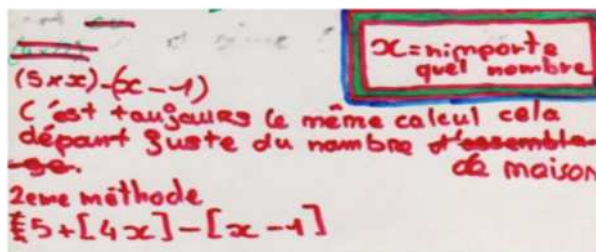 x = nimporte
quel nombre
(5 x x) - (x - 1)
C'est toujours le même calcul cela
départ juste du nombre d'assembla-
ge.
de maison
2eme méthode
5 + [4x] - [x - 1]